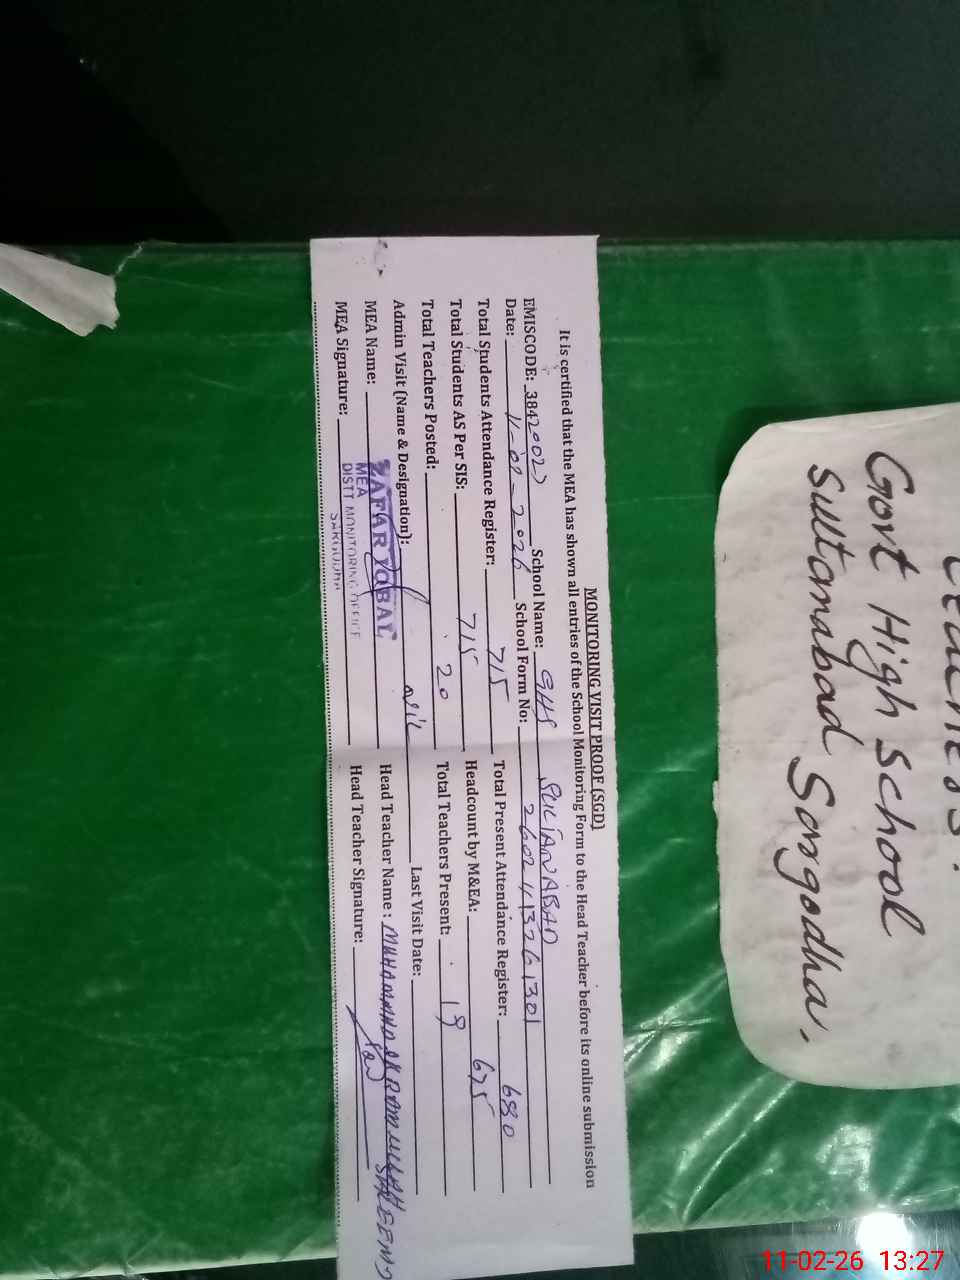 MONITORING VISIT PROOF (SGD)
It is certified that the MEA has shown all entries of the School Monitoring Form to the Head Teacher before its online submission
EMISCODE: 38420027 School Name: GHS SULTANABAD
Date: 11-02-2026 School Form No: 2602413261301
Total Students Attendance Register: 715 Total Present Attendance Register: 680
Total Students AS Per SIS: 715 Headcount by M&EA: 675
Total Teachers Posted: 20 Total Teachers Present: 19
Admin Visit (Name & Designation): Last Visit Date:
MEA Name: ZAFAR IQBAL Head Teacher Name: MUHAMMAD IKRAM ULLAH SALEEMI
MEA
MEA Signature: DISTT MONITORING OFFICE Head Teacher Signature:
SARGODHA
Govt High School
Sultanabad Sargodha.
11-02-26 13:27